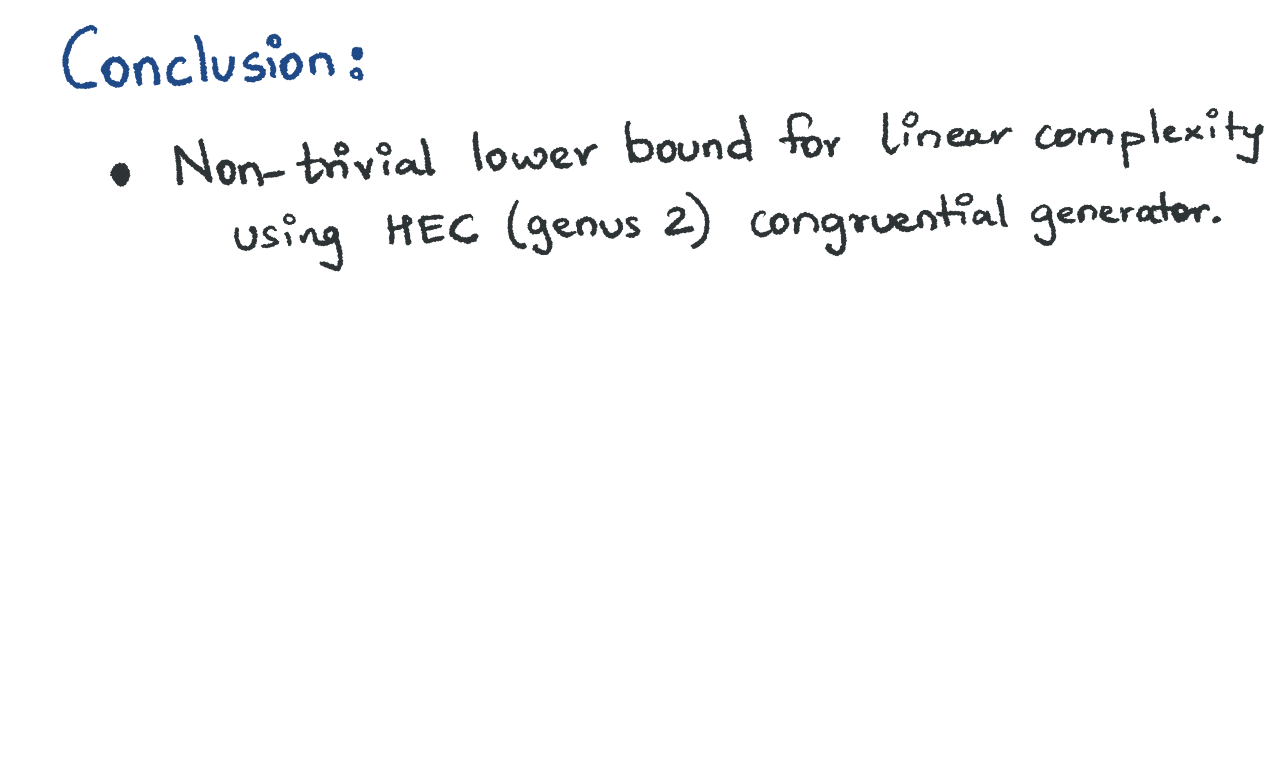 Conclusion:
• Non-trivial lower bound for linear complexity
using HEC (genus 2) congruential generator.